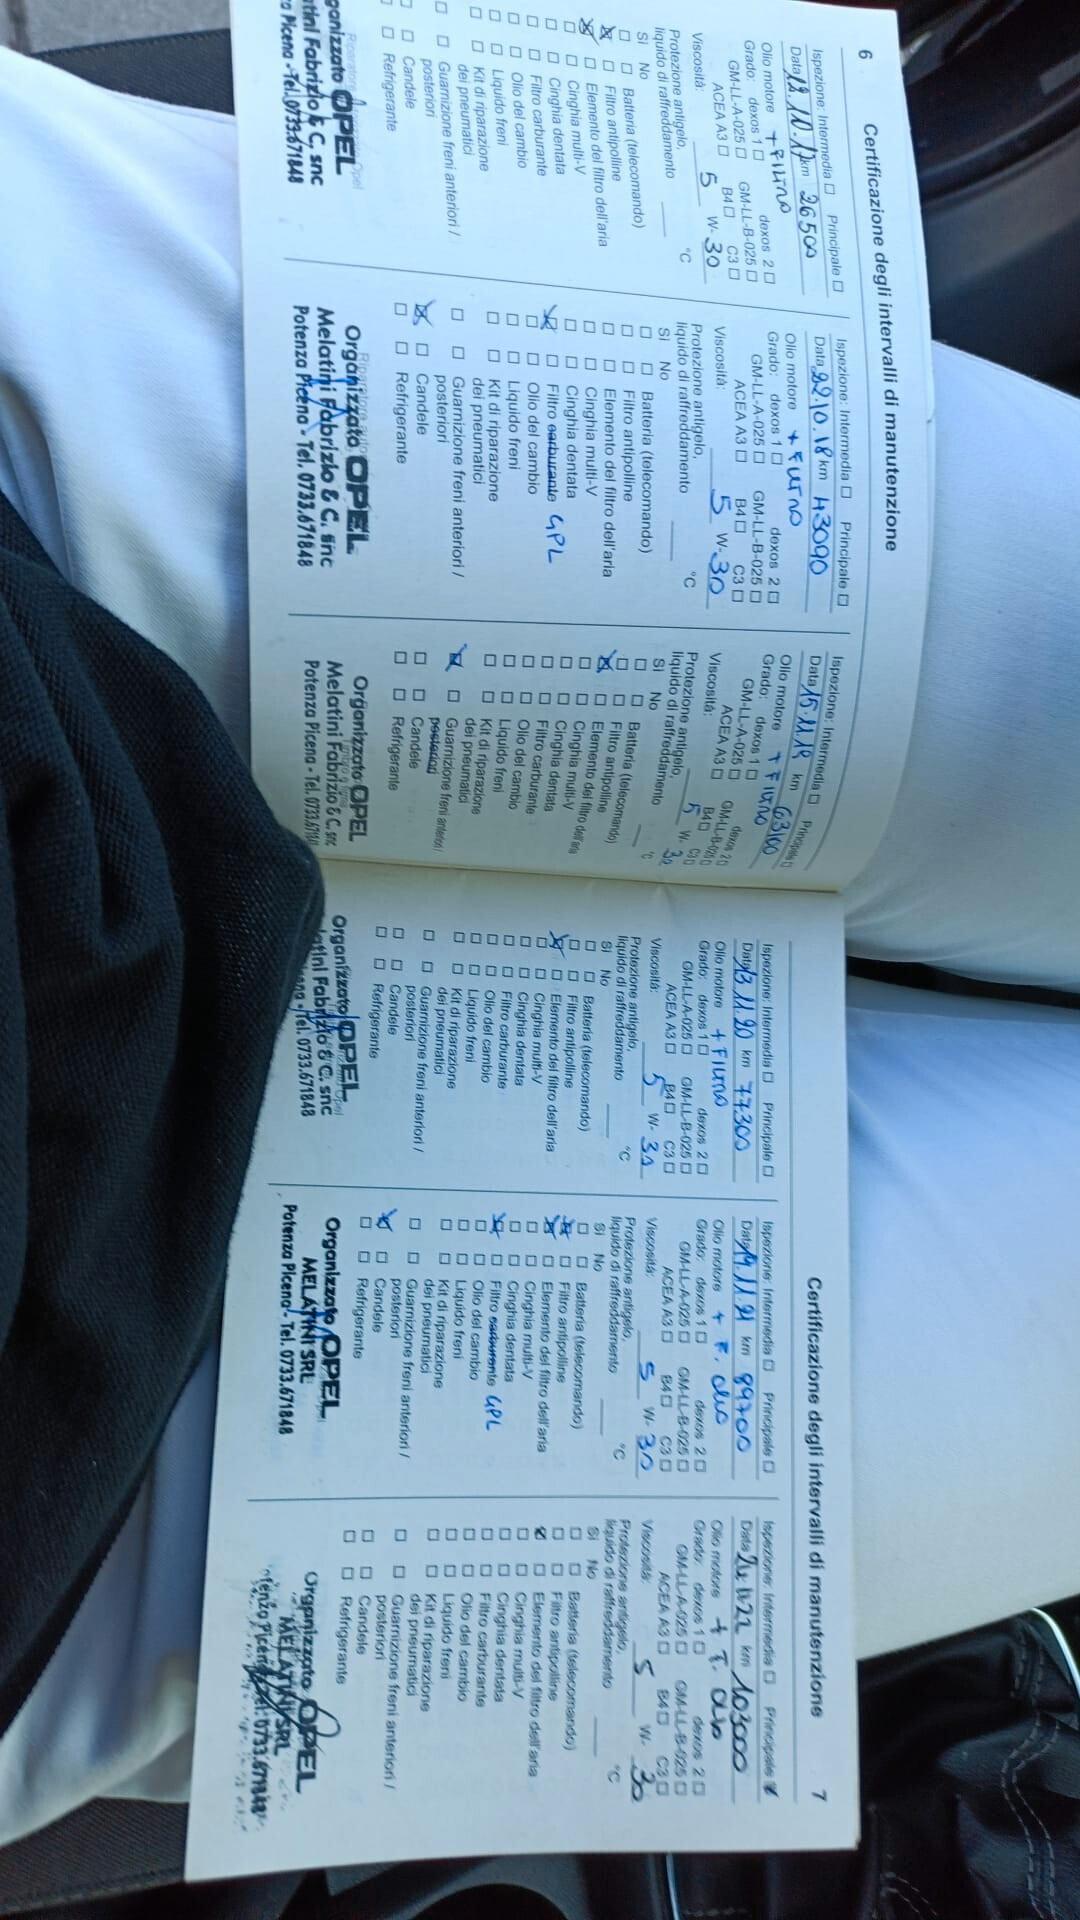 6
Certificazione degli intervalli di manutenzione
Ispezione: Intermedia ☐ Principale ☐
Data 12.10.17 km 26500
Olio motore + FILTRO
Grado: dexos 1 ☐ dexos 2 ☐
GM-LL-A-025 ☐ GM-LL-B-025 ☐
ACEA A3 ☐ B4 ☐ C3 ☐
Viscosità: 5 W- 30
Protezione antigelo,
liquido di raffreddamento °C
Sì No
☐ ☐ Batteria (telecomando)
☒ ☐ Filtro antipolline
☒ ☐ Elemento del filtro dell'aria
☐ ☐ Cinghia multi-V
☐ ☐ Cinghia dentata
☐ ☐ Filtro carburante
☐ ☐ Olio del cambio
☐ ☐ Liquido freni
☐ ☐ Kit di riparazione
dei pneumatici
☐ ☐ Guarnizione freni anteriori /
posteriori
☐ ☐ Candele
☐ ☐ Refrigerante
ganizzato OPEL
tini Fabrizio & C. snc
a Picena - Tel. 0733.671848
Ispezione: Intermedia ☐ Principale ☐
Data 22.10.18 km 43090
Olio motore + FILTRO
Grado: dexos 1 ☐ dexos 2 ☐
GM-LL-A-025 ☐ GM-LL-B-025 ☐
ACEA A3 ☐ B4 ☐ C3 ☐
Viscosità: 5 W- 30
Protezione antigelo,
liquido di raffreddamento °C
Sì No
☐ ☐ Batteria (telecomando)
☐ ☐ Filtro antipolline
☐ ☐ Elemento del filtro dell'aria
☐ ☐ Cinghia multi-V
☐ ☐ Cinghia dentata
☒ ☐ Filtro carburante GPL
☐ ☐ Olio del cambio
☐ ☐ Liquido freni
☐ ☐ Kit di riparazione
dei pneumatici
☐ ☐ Guarnizione freni anteriori /
posteriori
☒ ☐ Candele
☐ ☐ Refrigerante
Organizzato OPEL
Melatini Fabrizio & C. snc
Potenza Picena - Tel. 0733.671848
Ispezione: Intermedia ☐ Principale ☐
Data 15.11.19 km 63100
Olio motore + FILTRO
Grado: dexos 1 ☐ dexos 2 ☐
GM-LL-A-025 ☐ GM-LL-B-025 ☐
ACEA A3 ☐ B4 ☐ C3 ☐
Viscosità: 5 W- 30
Protezione antigelo,
liquido di raffreddamento °C
Sì No
☐ ☐ Batteria (telecomando)
☐ ☐ Filtro antipolline
☒ ☐ Elemento del filtro dell'aria
☐ ☐ Cinghia multi-V
☐ ☐ Cinghia dentata
☐ ☐ Filtro carburante
☐ ☐ Olio del cambio
☐ ☐ Liquido freni
☐ ☐ Kit di riparazione
dei pneumatici
☒ ☐ Guarnizione freni anteriori /
posteriori
☐ ☐ Candele
☐ ☐ Refrigerante
Organizzato OPEL
Melatini Fabrizio & C. snc
Potenza Picena - Tel. 0733.6718
Certificazione degli intervalli di manutenzione
7
Ispezione: Intermedia ☐ Principale ☐
Data 13.11.20 km 77300
Olio motore + FILTRO
Grado: dexos 1 ☐ dexos 2 ☐
GM-LL-A-025 ☐ GM-LL-B-025 ☐
ACEA A3 ☐ B4 ☐ C3 ☐
Viscosità: 5 W- 30
Protezione antigelo,
liquido di raffreddamento °C
Sì No
☐ ☐ Batteria (telecomando)
☐ ☐ Filtro antipolline
☒ ☐ Elemento del filtro dell'aria
☐ ☐ Cinghia multi-V
☐ ☐ Cinghia dentata
☐ ☐ Filtro carburante
☐ ☐ Olio del cambio
☐ ☐ Liquido freni
☐ ☐ Kit di riparazione
dei pneumatici
☐ ☐ Guarnizione freni anteriori /
posteriori
☐ ☐ Candele
☐ ☐ Refrigerante
Organizzato OPEL
latini Fabrizio & C. snc
Tel. 0733.671848
Ispezione: Intermedia ☐ Principale ☐
Data 19.11.21 km 89700
Olio motore + F. olio
Grado: dexos 1 ☐ dexos 2 ☐
GM-LL-A-025 ☐ GM-LL-B-025 ☐
ACEA A3 ☐ B4 ☐ C3 ☐
Viscosità: 5 W- 30
Protezione antigelo,
liquido di raffreddamento °C
Sì No
☐ ☐ Batteria (telecomando)
☒ ☐ Filtro antipolline
☒ ☐ Elemento del filtro dell'aria
☐ ☐ Cinghia multi-V
☐ ☐ Cinghia dentata
☒ ☐ Filtro carburante GPL
☐ ☐ Olio del cambio
☐ ☐ Liquido freni
☐ ☐ Kit di riparazione
dei pneumatici
☐ ☐ Guarnizione freni anteriori /
posteriori
☒ ☐ Candele
☐ ☐ Refrigerante
Organizzato OPEL
MELATINI SRL
Potenza Picena - Tel. 0733.671848
Ispezione: Intermedia ☐ Principale ☒
Data km 103000
Olio motore + F. olio
Grado: dexos 1 ☐ dexos 2 ☐
GM-LL-A-025 ☐ GM-LL-B-025 ☐
ACEA A3 ☐ B4 ☐ C3 ☐
Viscosità: 5 W- 30
Protezione antigelo,
liquido di raffreddamento °C
Sì No
☐ ☐ Batteria (telecomando)
☐ ☐ Filtro antipolline
☒ ☐ Elemento del filtro dell'aria
☐ ☐ Cinghia multi-V
☐ ☐ Cinghia dentata
☐ ☐ Filtro carburante
☐ ☐ Olio del cambio
☐ ☐ Liquido freni
☐ ☐ Kit di riparazione
dei pneumatici
☐ ☐ Guarnizione freni anteriori /
posteriori
☐ ☐ Candele
☐ ☐ Refrigerante
Organizzato OPEL
MELATINI SRL
otenza Picena Tel. 0733.671848